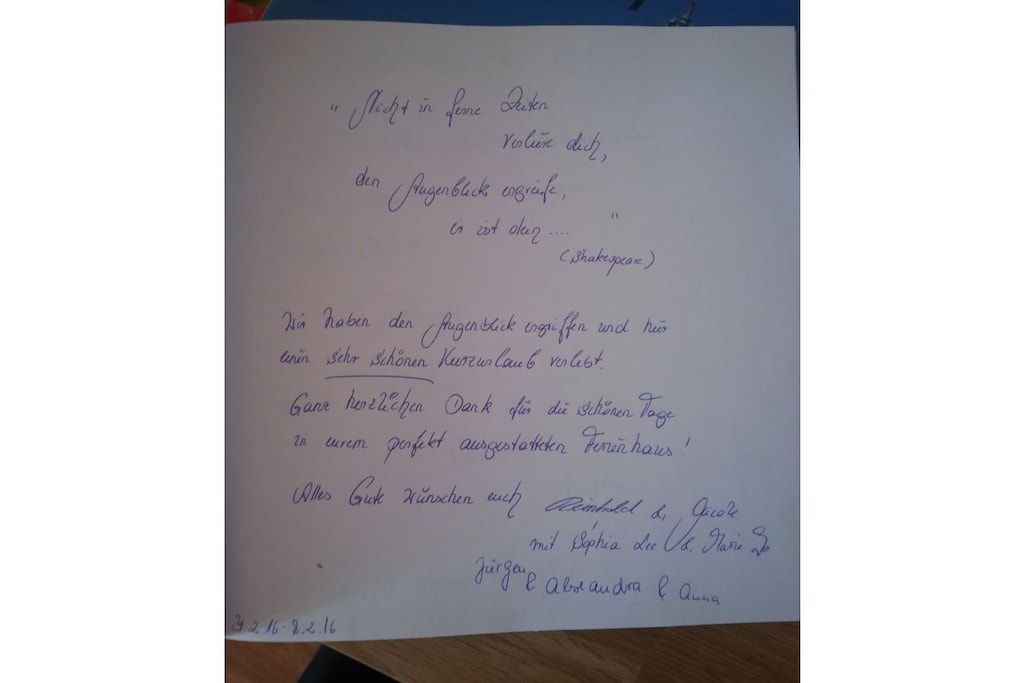 "Nicht in ferne Zeiten
verliere dich,
den Augenblick ergreife,
er ist dein .... "
(Shakespeare)
Wir haben den Augenblick ergriffen und hier
einen sehr schönen Kurzurlaub verlebt.
Ganz herzlichen Dank für die schönen Tage
in eurem perfekt ausgestatteten Ferienhaus!
Alles Gute wünschen euch Reinhold &
mit Sophia Lee & Marie
Jürgen & Alexandra & Anna
.2.16-8.2.16